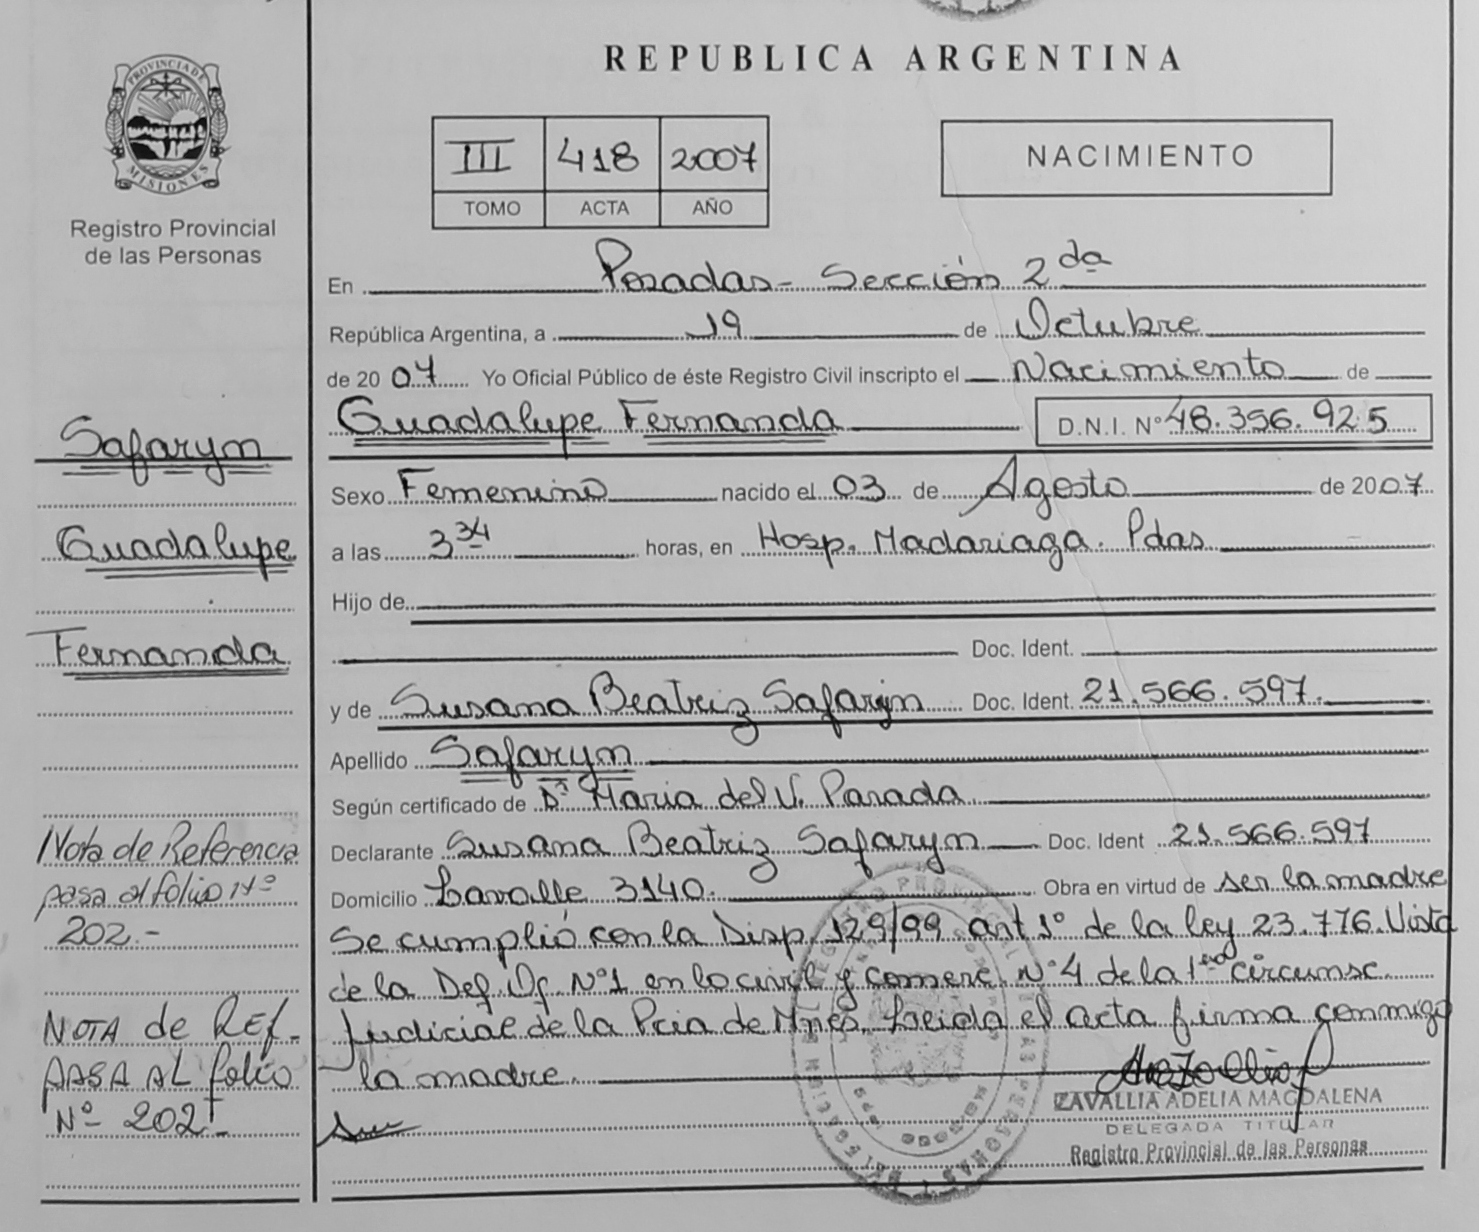 REPUBLICA ARGENTINA
PROVINCIA DE
MISIONES
Registro Provincial
de las Personas
III 418 2007
TOMO ACTA AÑO
NACIMIENTO
En Posadas - Sección 2da
República Argentina, a 19 de Octubre
de 2007 Yo Oficial Público de éste Registro Civil inscripto el Nacimiento de
Guadalupe Fernanda D.N.I. Nº 48.356.925
Sexo Femenino nacido el 03 de Agosto de 2007
a las 3 34 horas, en Hosp. Madariaga. Pdas
Hijo de
Doc. Ident.
y de Susana Beatriz Safaryn Doc. Ident. 21.566.597.
Apellido Safaryn
Según certificado de Dª Maria del V. Parada
Declarante Susana Beatriz Safaryn Doc. Ident 21.566.597
Domicilio Lavalle 3140. Obra en virtud de ser la madre
Se cumplió con la Disp. 129/99 art 1º de la ley 23.776. Vista
de la Def. Of. Nº1 en lo civil y comerc. Nº4 de la 1era circunsc.
Judicial de la Pcia de Mnes. Leida el acta firma conmigo
la madre.
ZAVALLIA ADELIA MAGDALENA
DELEGADA TITULAR
Registro Provincial de las Personas
Safaryn
Guadalupe
Fernanda
Nota de Referencia
pasa al folio Nº
202.-
NOTA de Ref.
PASA AL folio
Nº 202